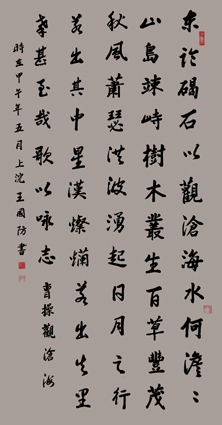 东临碣石以觀滄海水何澹〻
山島竦峙樹木叢生百草豐茂
秋風蕭瑟洪波湧起日月之行
若出其中星漢燦爛若出其里
幸甚至哉歌以咏志 曹操觀滄海
時在甲午年五月上浣王國防書